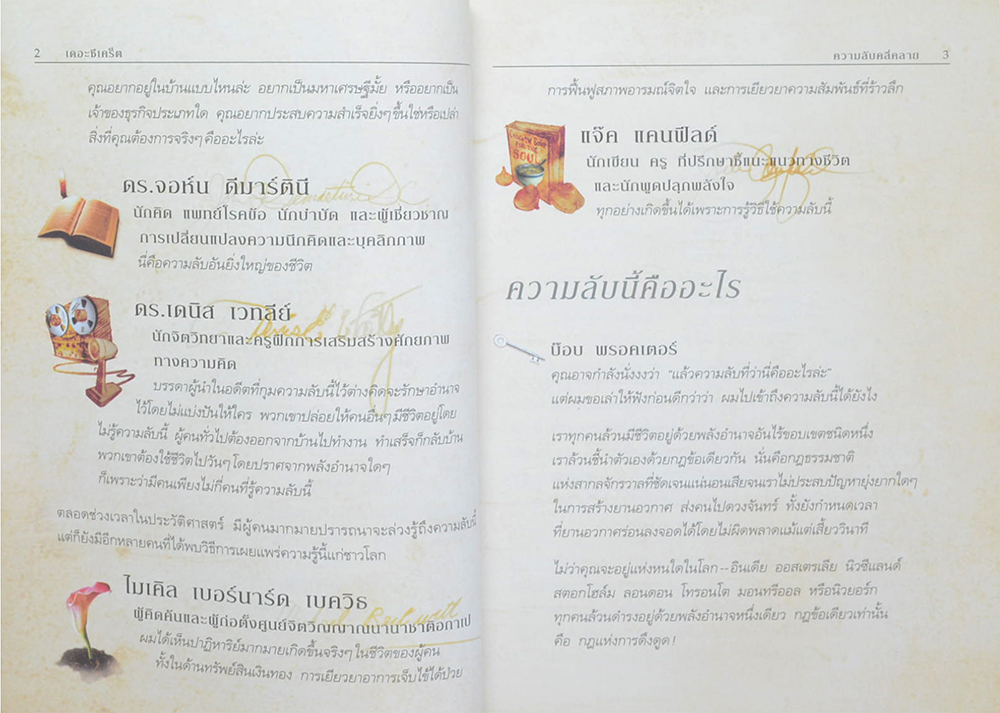 2 เดอะซีเคร็ต
คุณอยากอยู่ในบ้านแบบไหนล่ะ อยากเป็นมหาเศรษฐีมั้ย หรืออยากเป็น
เจ้าของธุรกิจประเภทใด คุณอยากประสบความสำเร็จยิ่งๆ ขึ้นใช่หรือเปล่า
สิ่งที่คุณต้องการจริงๆ คืออะไรล่ะ
ดร.จอห์น ดีมาร์ตินี
นักคิด แพทย์โรคข้อ นักบำบัด และผู้เชี่ยวชาญ
การเปลี่ยนแปลงความนึกคิดและบุคลิกภาพ
นี่คือความลับอันยิ่งใหญ่ของชีวิต
ดร.เดนิส เวทลีย์
นักจิตวิทยาและครูฝึกการเสริมสร้างศักยภาพ
ทางความคิด
บรรดาผู้นำในอดีตที่กุมความลับนี้ไว้ต่างคิดจะรักษาอำนาจ
ไว้โดยไม่แบ่งปันให้ใคร พวกเขาปล่อยให้คนอื่นๆ มีชีวิตอยู่โดย
ไม่รู้ความลับนี้ ผู้คนทั่วไปต้องออกจากบ้านไปทำงาน ทำเสร็จก็กลับบ้าน
พวกเขาต้องใช้ชีวิตไปวันๆ โดยปราศจากพลังอำนาจใดๆ
ก็เพราะว่ามีคนเพียงไม่กี่คนที่รู้ความลับนี้
ตลอดช่วงเวลาในประวัติศาสตร์ มีผู้คนมากมายปรารถนาจะล่วงรู้ถึงความลับนี้
แต่ก็ยังมีอีกหลายคนที่ได้พบวิธีการเผยแพร่ความรู้นี้แก่ชาวโลก
ไมเคิล เบอร์นาร์ด เบควิธ
ผู้คิดค้นและผู้ก่อตั้งศูนย์จิตวิญญาณนานาชาติอกาเป
ผมได้เห็นปาฏิหาริย์มากมายเกิดขึ้นจริงๆ ในชีวิตของผู้คน
ทั้งในด้านทรัพย์สินเงินทอง การเยียวยาอาการเจ็บไข้ได้ป่วย
ความลับคลี่คลาย 3
การฟื้นฟูสภาพอารมณ์จิตใจ และการเยียวยาความสัมพันธ์ที่ร้าวลึก
แจ๊ค แคนฟีลด์
นักเขียน ครู ที่ปรึกษาชี้แนะแนวทางชีวิต
และนักพูดปลุกพลังใจ
ทุกอย่างเกิดขึ้นได้เพราะการรู้วิธีใช้ความลับนี้
ความลับนี้คืออะไร
บ๊อบ พรอคเตอร์
คุณอาจกำลังนั่งงงว่า "แล้วความลับที่ว่านี่คืออะไรล่ะ"
แต่ผมขอเล่าให้ฟังก่อนดีกว่าว่า ผมไปเข้าถึงความลับนี้ได้ยังไง
เราทุกคนล้วนมีชีวิตอยู่ด้วยพลังอำนาจอันไร้ขอบเขตชนิดหนึ่ง
เราล้วนชี้นำตัวเองด้วยกฎข้อเดียวกัน นั่นคือกฎธรรมชาติ
แห่งสากลจักรวาลที่ชัดเจนแน่นอนเสียจนเราไม่ประสบปัญหายุ่งยากใดๆ
ในการสร้างยานอวกาศ ส่งคนไปดวงจันทร์ ทั้งยังกำหนดเวลา
ที่ยานอวกาศร่อนลงจอดได้โดยไม่ผิดพลาดแม้แต่เสี้ยววินาที
ไม่ว่าคุณจะอยู่แห่งหนใดในโลก -- อินเดีย ออสเตรเลีย นิวซีแลนด์
สตอกโฮล์ม ลอนดอน โทรอนโต มอนทรีออล หรือนิวยอร์ก
ทุกคนล้วนดำรงอยู่ด้วยพลังอำนาจหนึ่งเดียว กฎข้อเดียวเท่านั้น
คือ กฎแห่งการดึงดูด !